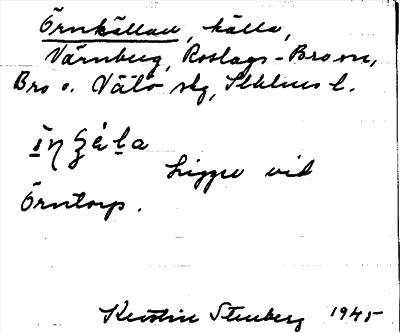 Örnkällan, källa,
Värnberg, Roslags-Bro sn,
Bro o. Vätö skg, Sthlms l.
Ligger vid
Örntorp.
Kerstin Stenberg 1945